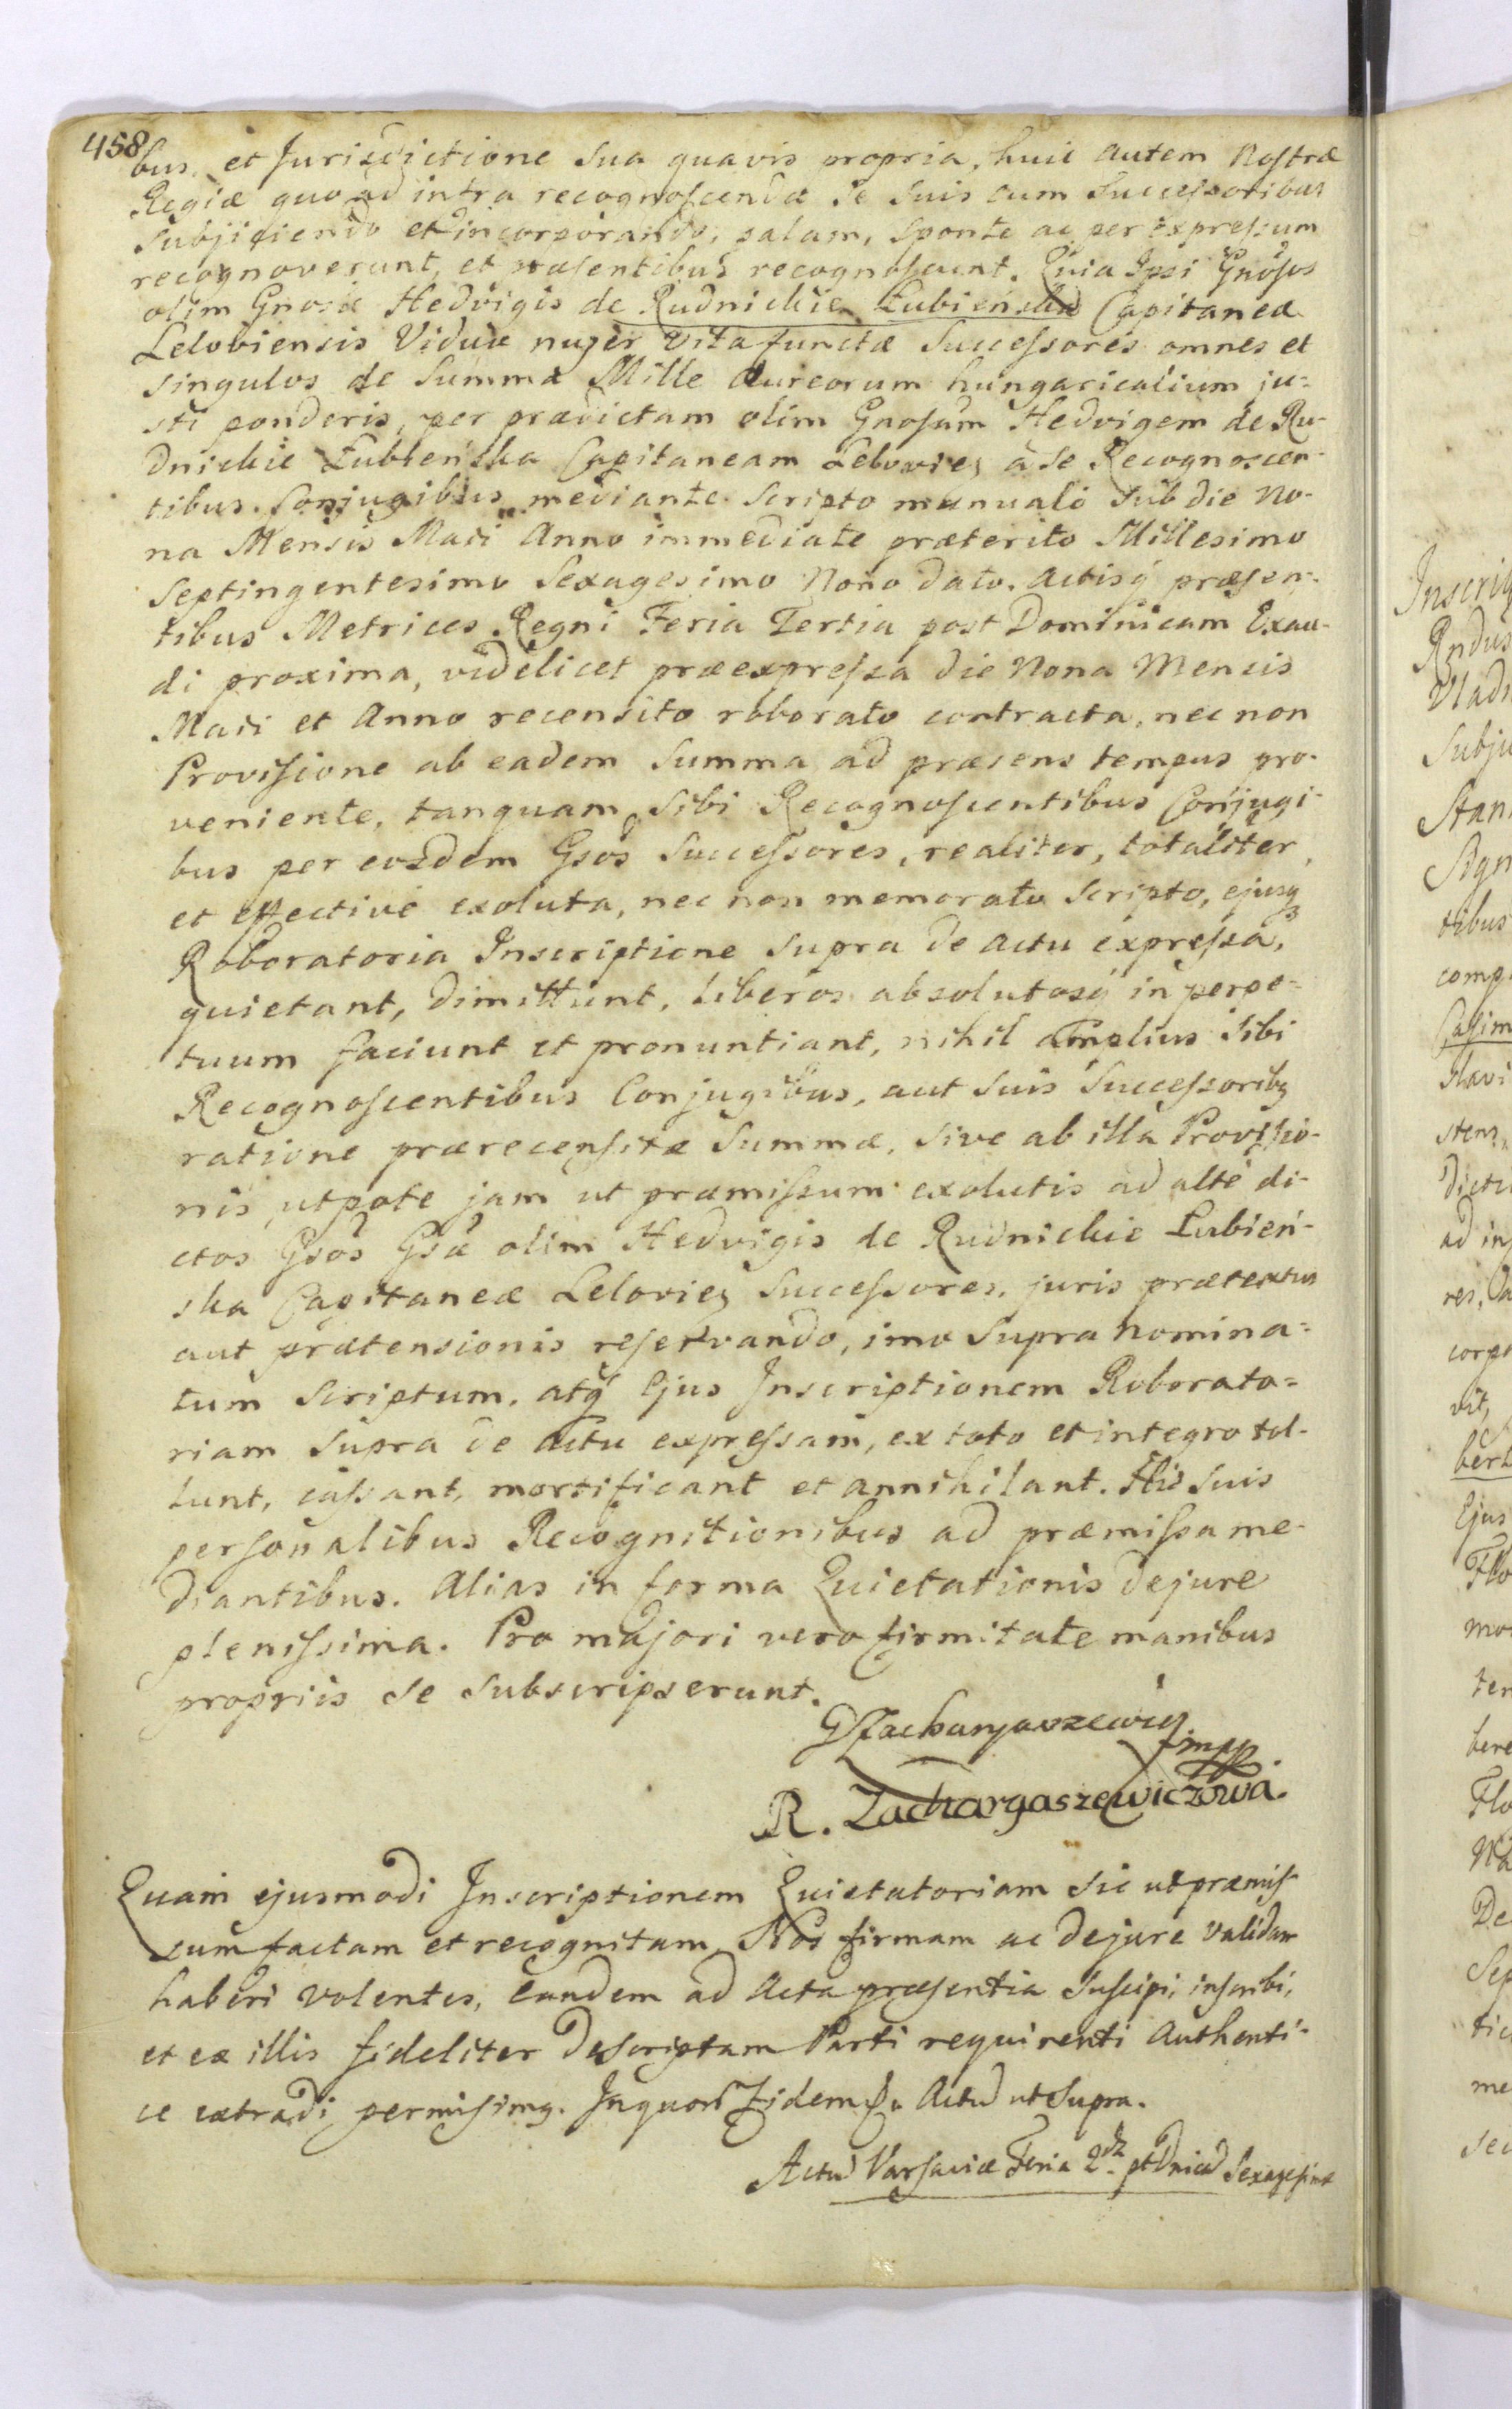 458
bus, et Jurisdictione sua quavis propria, huic autem Nostræ
Regiæ quo ad intra recognoscenda se suis cum Successoribus
subjiciendo et incorporando, palam, sponte ac per expressum
recognoverunt, et præsentibus recognoscunt. Quia Ipsi Gnosos
olim Gnosæ Hedvigis de Rudnickie Łubieńska Capitaneæ
Leloviensis Viduæ nuper vita functæ Successores omnes et
singulos de Summa Mille Aureorum hungaricalium ju=
sti ponderis, per prædictam olim Gnosam Hedvigem de Ru-
dnickie Łubieńska Capitaneam Lelovien à se Recognoscen-
tibus Conjugibus mediante scripto manuali sub die No-
na Mensis Maii Anno immediate præterito Millesimo
Septingentesimo Sexagesimo Nono dato, Actisq præsen-
tibus Metrices Regni Feria Tertia post Dominicam Exau-
di proxima, videlicet præexpressa die Nona Mensis
Maii et Anno recensito roborato contracta, nec non
Provisione ab eadem Summa ad præsens tempus pro-
veniente, tanquam sibi Recognoscentibus Conjugi-
bus per eosdem Gsos Successores, realiter, totaliter,
et effectivè exoluta, nec non memorato Scripto, ejusq
Roboratoria Inscriptione supra de actu expressa,
quietant, dimittunt, liberos absolutosq in perpe=
tuum faciunt et pronuntiant, nihil amplius sibi
Recognoscentibus Conjugibus, aut suis Successoribq
ratione prærecensitæ Summæ, sive ab illa Provisio-
nis, utpote jam ut præmissum exolutis ad altè di-
ctos Gsos Gsæ olim Hedvigis de Rudnickie Łubień-
ska Capitaneæ Lelovien Successores, juris prætextus
aut prætensionis reservando, imo supra nomina=
tum Scriptum, atq Ejus Inscriptionem Roborato=
riam supra de Actu expressam, ex toto et integro tol-
lunt, cassant, mortificant et annihilant. His suis
personalibus Recognitionibus ad præmissa me-
diantibus. Alias in forma Quietationis de jure
plenissima. Pro majori vero firmitate manibus
propriis se subscripserunt.
GZacharyaszewicz
mpp
R. Zachargaszewiczowa.
Quam ejusmodi Inscriptionem Quietatoriam sic ut præmis-
sum factam et recognitam, Nos firmam ac de jure validam
haberi volentes, eandem ad Acta præsentia suscipi, inscribi,
et ex illis fideliter descriptam Parti requirenti Authenti-
ce extradi permisimq. In quor Fidem &. Actu ut supra.
Actu Varsaviæ Feria 2da pt Dnicā Sexagesimæ